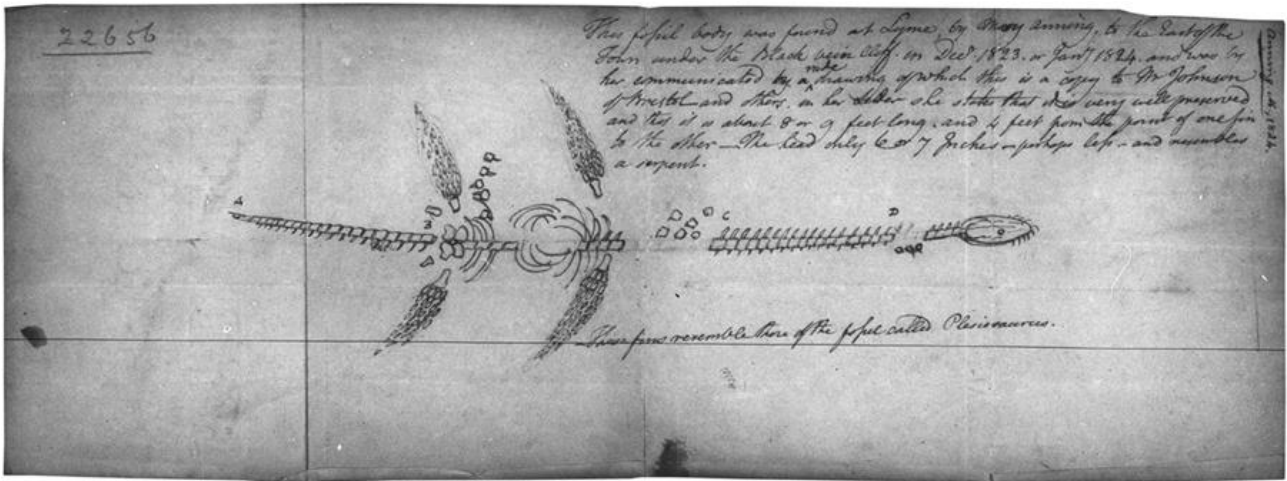 22656
This fossil body was found at Lyme, by Mary Anning, to the East of the
Town under the Black Vein Cliff. in Decr. 1823. or Jany 1824. and was by
her communicated by a rude drawing of which this is a copy to Mr Johnson
of Bristol and others. in her letter she states that it is very well preserved
and this it is about 8 or 9 feet long. and 4 feet from the point of one fin
to the other — The head only 6 or 7 Inches — perhaps less — and resembles
a serpent.
Anning M, 1824.
A
B
C
D
These fins resemble those of the fossil called Plesiosaurus.